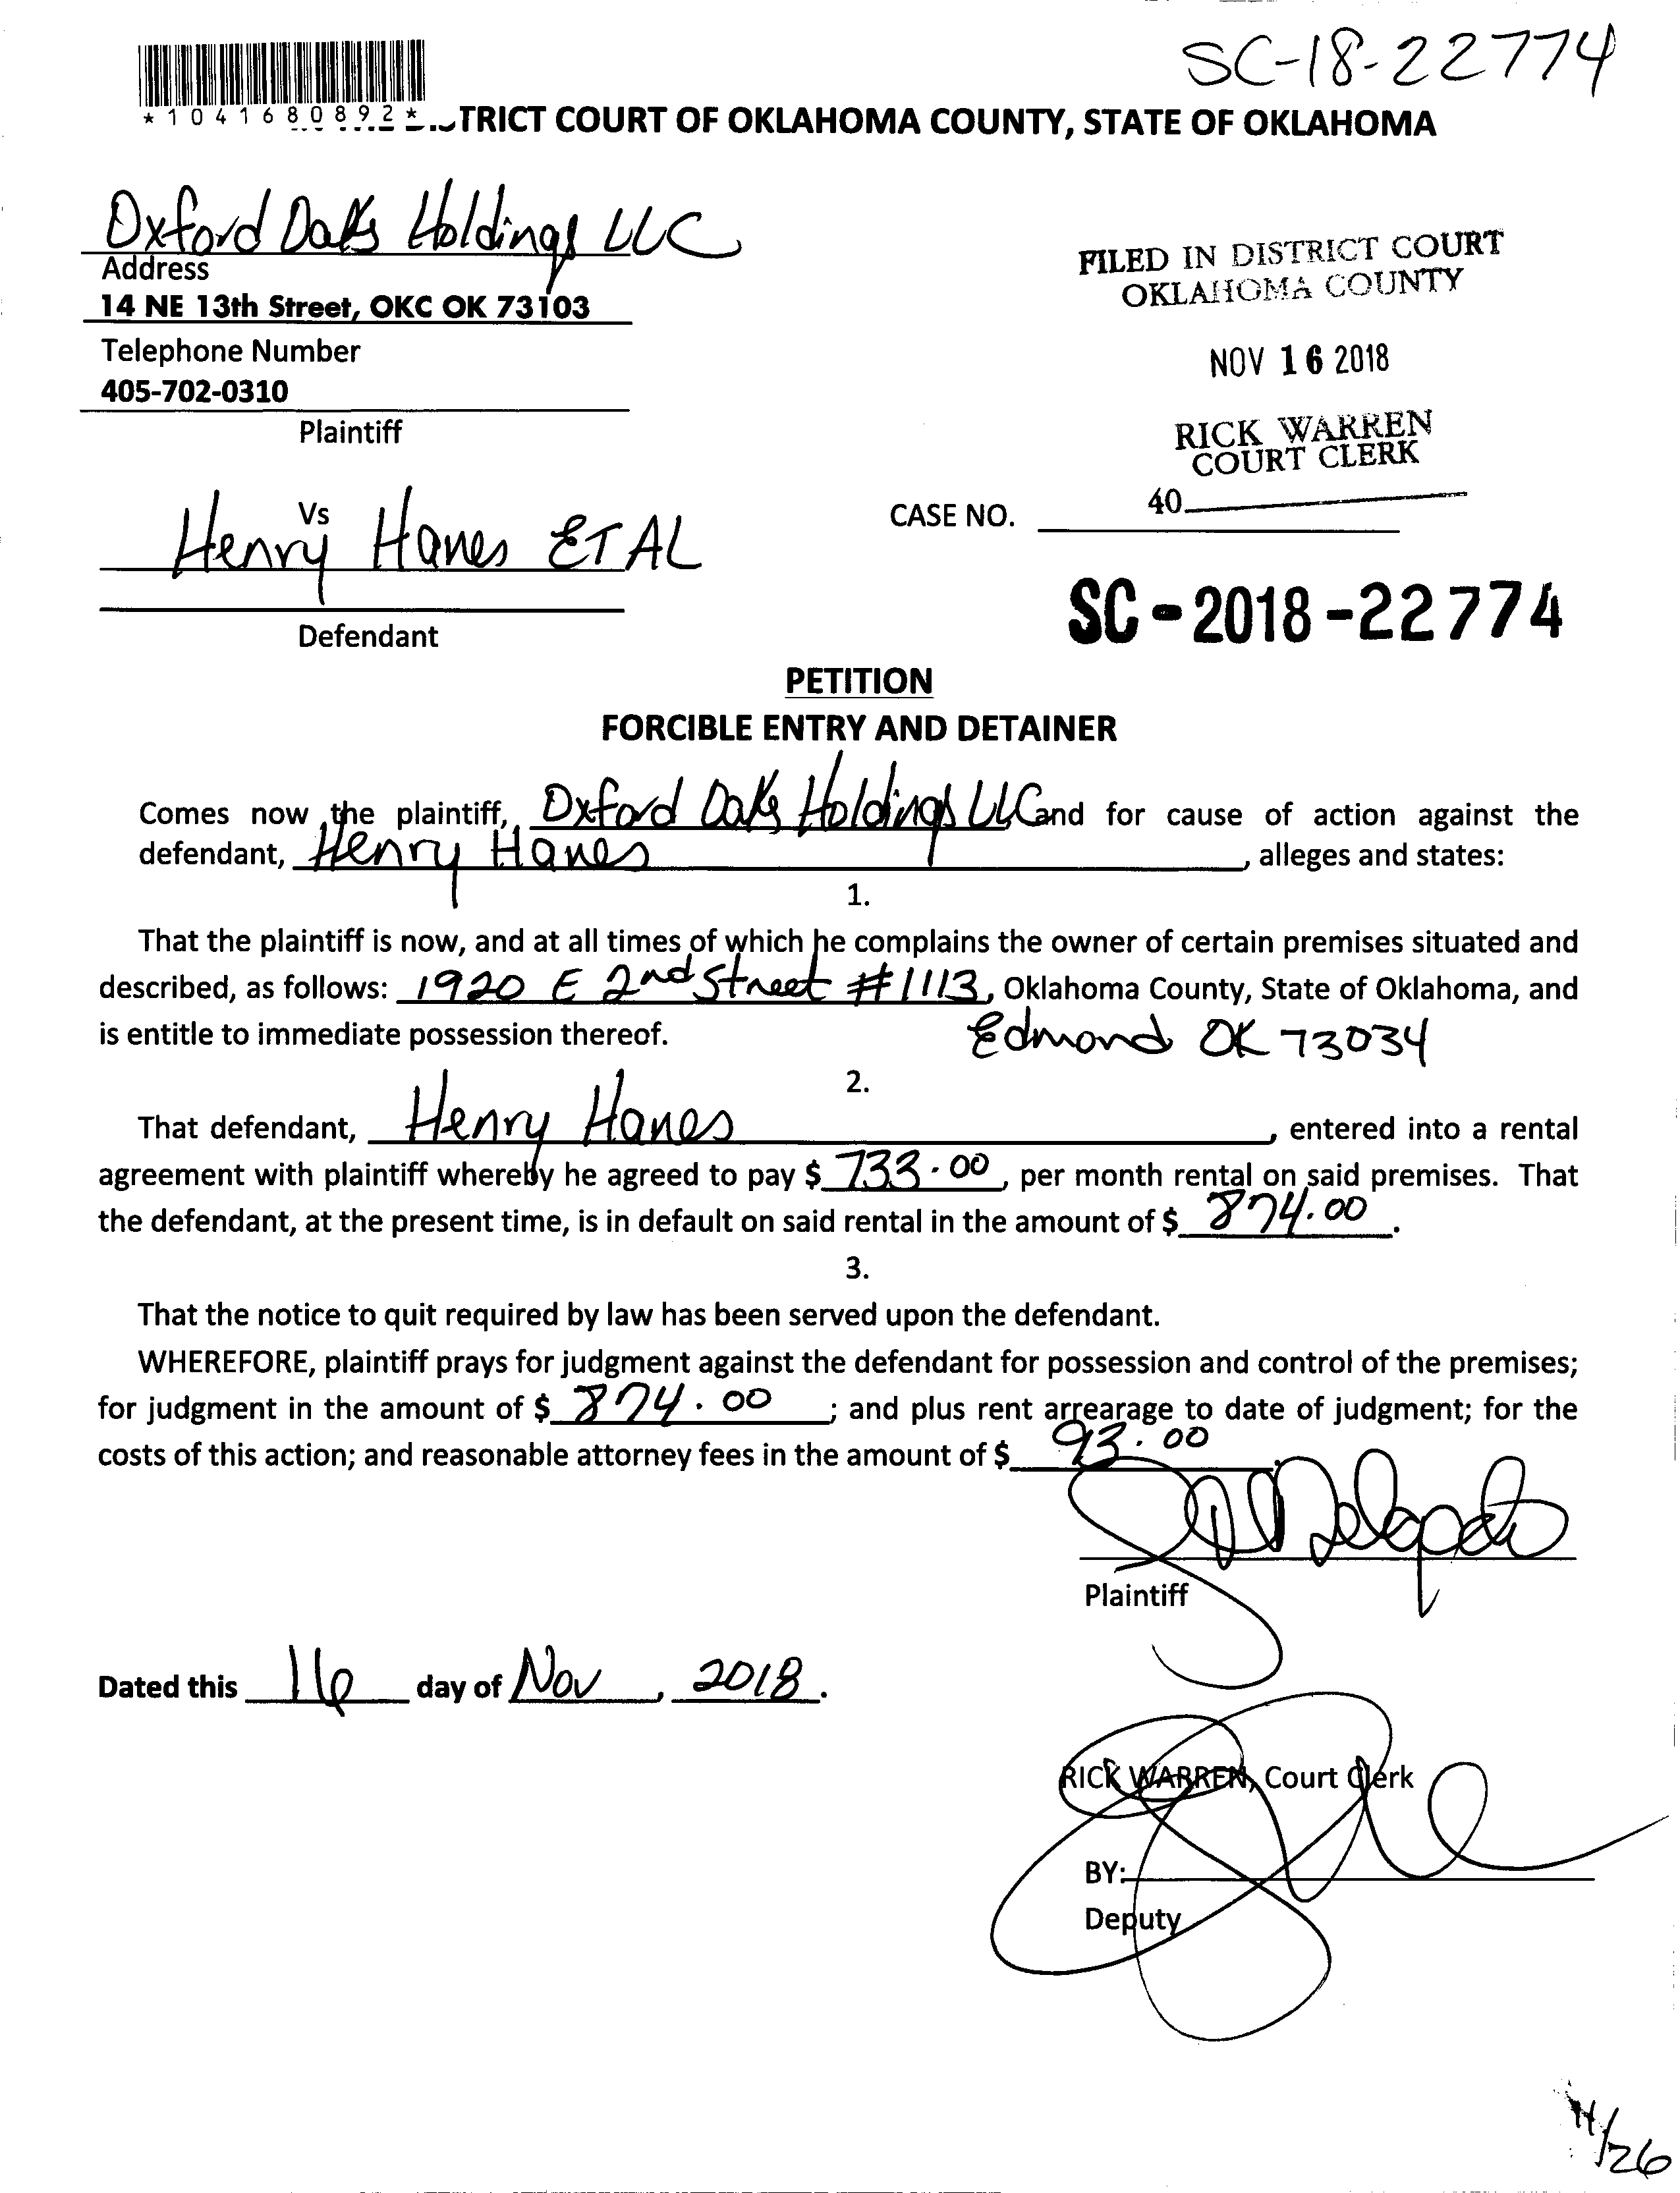 SC-18-22774
*1041680892*
TRICT COURT OF OKLAHOMA COUNTY, STATE OF OKLAHOMA
Oxford Oaks Holdings LLC
Address
14 NE 13th Street, OKC OK 73103
Telephone Number
405-702-0310
Plaintiff
FILED IN DISTRICT COURT
OKLAHOMA COUNTY
NOV 16 2018
RICK WARREN
COURT CLERK
40
Vs
Henry Hanes ET AL
Defendant
CASE NO.
SC-2018-22774
PETITION
FORCIBLE ENTRY AND DETAINER
Comes now the plaintiff, Oxford Oaks Holdings LLC and for cause of action against the
defendant, Henry Hanes, alleges and states:
1.
That the plaintiff is now, and at all times of which he complains the owner of certain premises situated and
described, as follows: 1920 E 2nd Street #1113, Oklahoma County, State of Oklahoma, and
is entitle to immediate possession thereof. Edmond OK 73034
2.
That defendant, Henry Hanes, entered into a rental
agreement with plaintiff whereby he agreed to pay $ 733.00, per month rental on said premises. That
the defendant, at the present time, is in default on said rental in the amount of $ 874.00.
3.
That the notice to quit required by law has been served upon the defendant.
WHEREFORE, plaintiff prays for judgment against the defendant for possession and control of the premises;
for judgment in the amount of $ 874.00; and plus rent arrearage to date of judgment; for the
costs of this action; and reasonable attorney fees in the amount of $ 93.00.
Delgado
Plaintiff
Dated this 16 day of Nov, 2018.
RICK WARREN, Court Clerk
BY:
Deputy
11/26